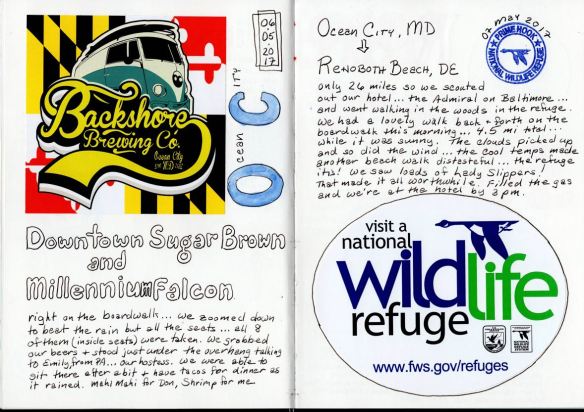 Backshore
Brewing Co.
Ocean City
MD
06
05
2017
Ocean City
Downtown Sugar Brown
and
Millennium Falcon
right on the boardwalk... we zoomed down
to beat the rain but all the seats... all 8
of them (inside seats) were taken. We grabbed
our beers + stood just under the overhang talking
to Emily, from PA... our hostess. We were able to
sit there after a bit + have tacos for dinner as
it rained. Mahi Mahi for Don, Shrimp for me
Ocean City, MD
Rehoboth Beach, DE
02 May 2017
PRIME HOOK
NATIONAL WILDLIFE REFUGE
only 26 miles so we scouted
out our hotel... the Admiral on Baltimore...
and went walking in the woods in the refuge.
We had a lovely walk back + forth on the
boardwalk this morning... 4.5 mi total...
while it was sunny. The clouds picked up
and so did the wind... the cool temps made
another beach walk distasteful... the refuge
it is! We saw loads of Lady Slippers!
That made it all worthwhile. Filled the gas
and we're at the hotel by 3pm.
visit a
national
wildlife
refuge
www.fws.gov/refuges